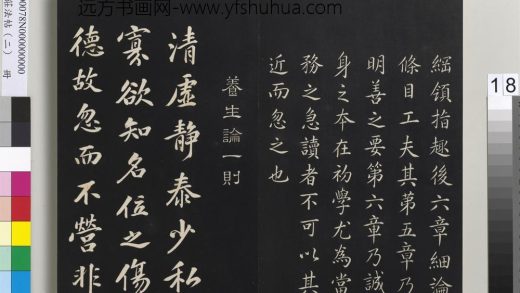 远方书画网-www.yfshuhua.com
綱領指趣後六章細論
條目工夫其第五章乃
明善之要第六章乃誠
身之本在初學尤為當
務之急讀者不可以其
近而忽之也
養生論一則
清虛靜泰少私
寡欲知名位之傷
德故忽而不營非
00078N000000000
法帖（二） 冊
18